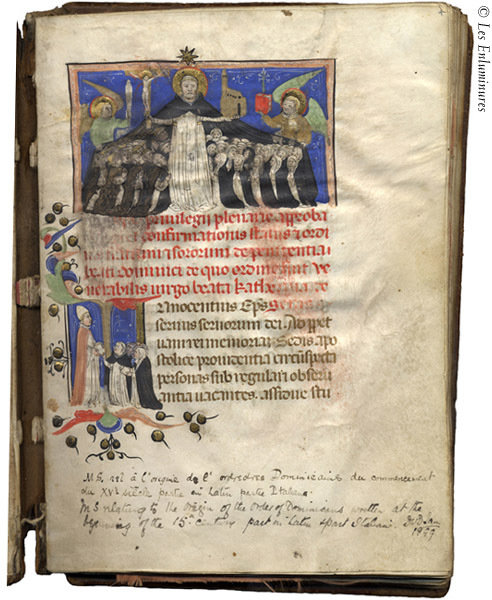 © Les Enluminures
privilegii plenarie approba
confirmationis status et ordi
sororum de penitentia
beati dominici de quo ordine fuit ve
nerabilis virgo beata Kathe
nnocentius Eps
servus servorum dei. Ad ppet
uam rei memoriam Sedis apo
stolice providentia circūspecta
personas sub regulari obserū
antia vacantes. assidue stu
MS. à l'origine de l' ordre des Dominicains du commencement
du XVe siècle partie en Latin partie Italiano
MS relating to the Origin of the Order of Dominicans written at the
beginning of the 15th century part in Latin & part Italian.